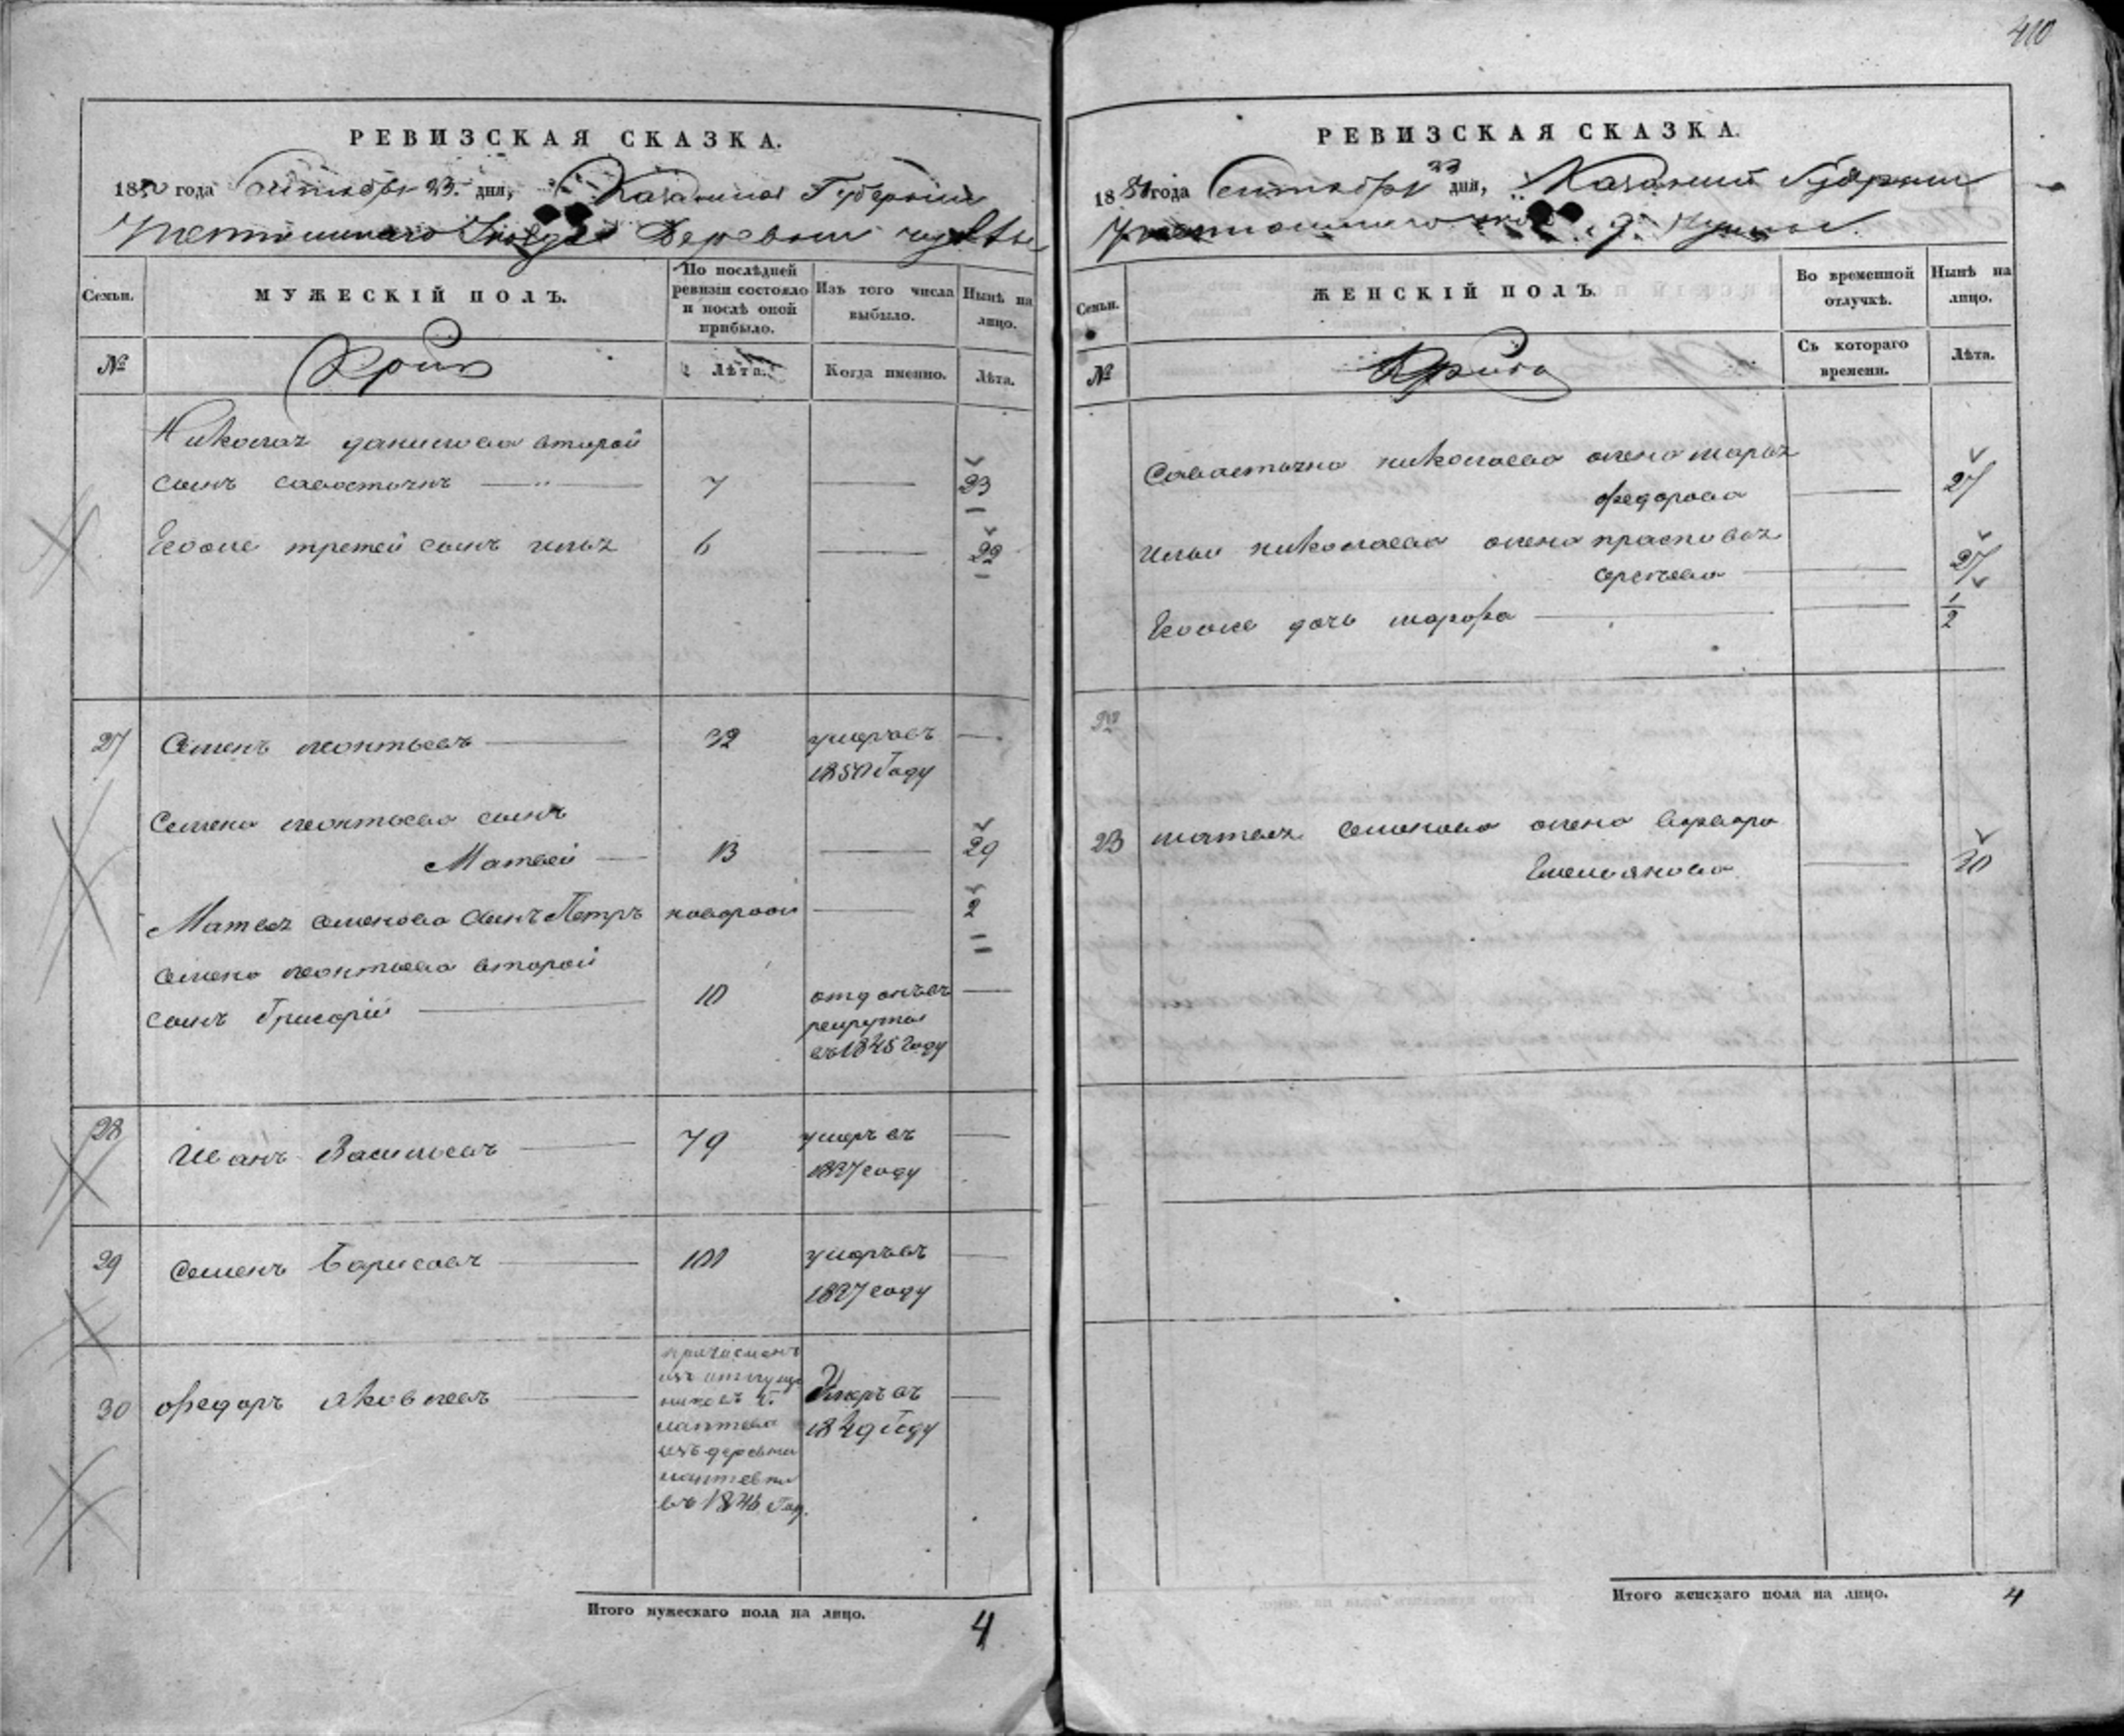 410
РЕВИЗСКАЯ СКАЗКА.
1850 года Октября 23. дня, Казанской Губернии
уезда Деревни
Семьи.
МУЖЕСКІЙ ПОЛЪ.
По послѣдней
ревизіи состояло
и послѣ оной
прибыло.
Изъ того числа
выбыло.
Нынѣ на
лицо.
№
Лѣта.
Когда именно.
Лѣта.
Николая данилова второй
сынъ савостьянъ 7 23
Ево же третей сынъ илья 6 22
27 Семенъ леонтьевъ 32 умеръ въ
1850 Году
Семена леонтьева сынъ
Матвей 13 29
Матвея семенова сынъ Петръ новорож 2
семена леонтьева второй
сынъ Григорій 10 отданъ въ
рекруты
въ 1845 году
28 Иванъ Васильевъ 79 умеръ въ
1837 году
29 Семенъ Борисовъ 101 умеръ въ
1837 году
30 федоръ яковлевъ
причисленъ
изъ
изъ деревни
въ 1846 Год.
Умеръ въ
1849 Году
Итого мужескаго пола на лицо. 4
РЕВИЗСКАЯ СКАЗКА.
1850 года 23 дня, Казанской Губернии
д.
Семьи.
ЖЕНСКІЙ ПОЛЪ.
Во временной
отлучкѣ.
Нынѣ на
лицо.
№
Съ котораго
времени.
Лѣта.
Савастьяна николаева жена марья
федорова 27
Ильи николаева жена прасковья
сергеева 27
Ево же дочь марфа 1/2
27
23 матвея семенова жена варвара
Емельянова 30
Итого женскаго пола на лицо. 4